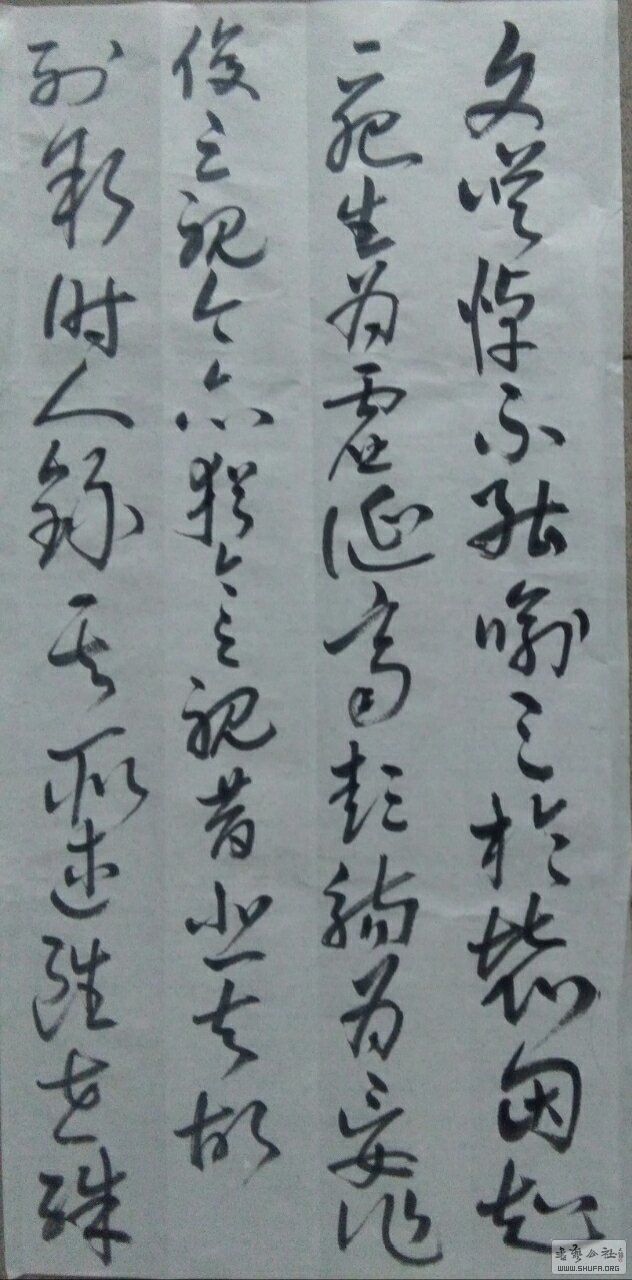 文嗟悼不能喻之於懷固知
一死生為虛誕齊彭殤為妄作
後之視今亦猶今之視昔悲夫故
列敘時人錄其所述雖世殊
書藝公社
WWW.SHUFA.ORG